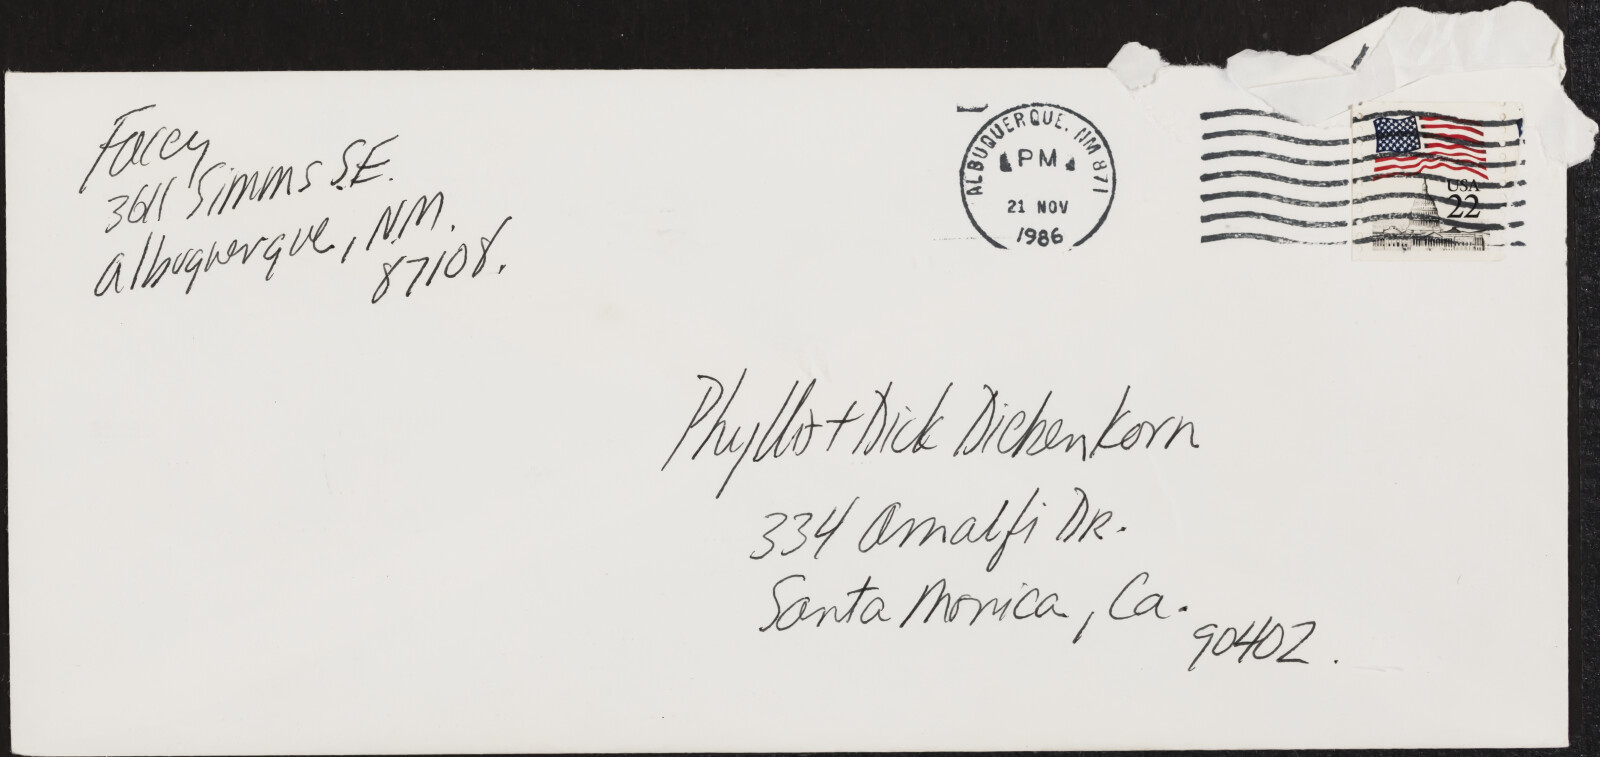 Facey
3611 Simms S.E.
Albuquerque, N.M.
87108.
ALBUQUERQUE, NM 871
PM
21 NOV
1986
USA
22
Phyllis + Dick Diebenkorn
334 Amalfi Dr.
Santa Monica, Ca.
90402.